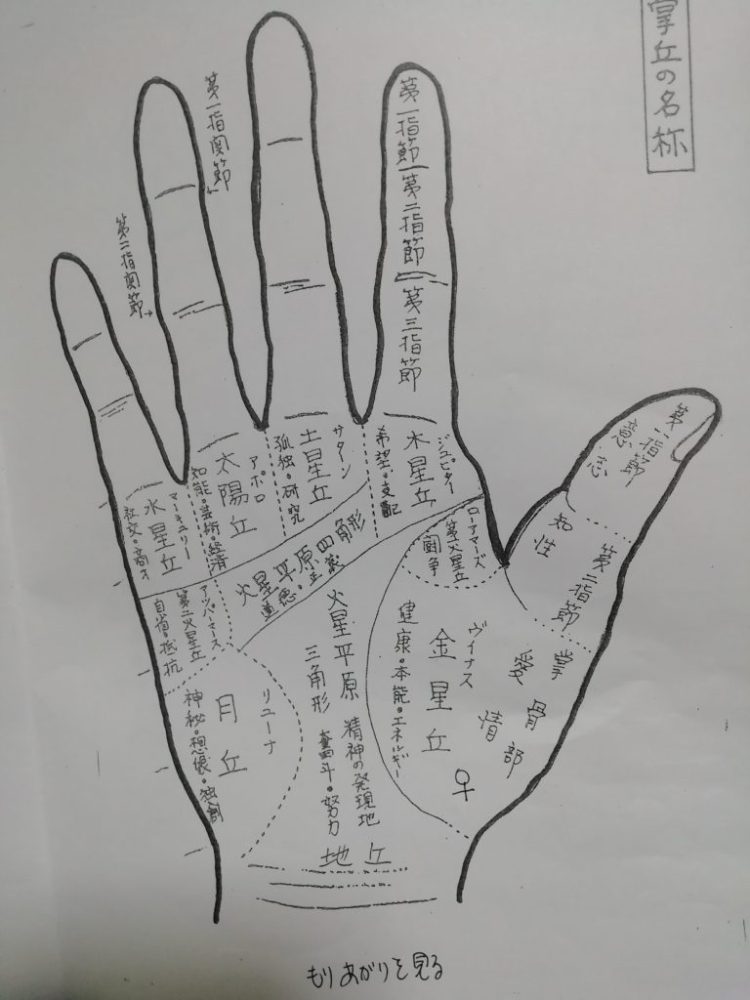 掌丘の名称
第一指関節
第二指関節
第一指節
第二指節
第三指節
第一指節
意志
第二指節
知性
ジュピター
木星丘
希望・支配
サターン
土星丘
孤独・研究
アポロ
太陽丘
知能・芸術・経済
マーキュリー
水星丘
社交・商才
火星平原四角形
道徳・
ローアマーズ
第一火星丘
闘争
アッパーマース
第二火星丘
自省・抵抗
火星平原
三角形
精神の発現地
奮斗・努力
ヴィナス
金星丘
健康・本能・エネルギー
♀
掌骨部
愛情
リューナ
月丘
神秘・想像・独創
地丘
もりあがりを見る